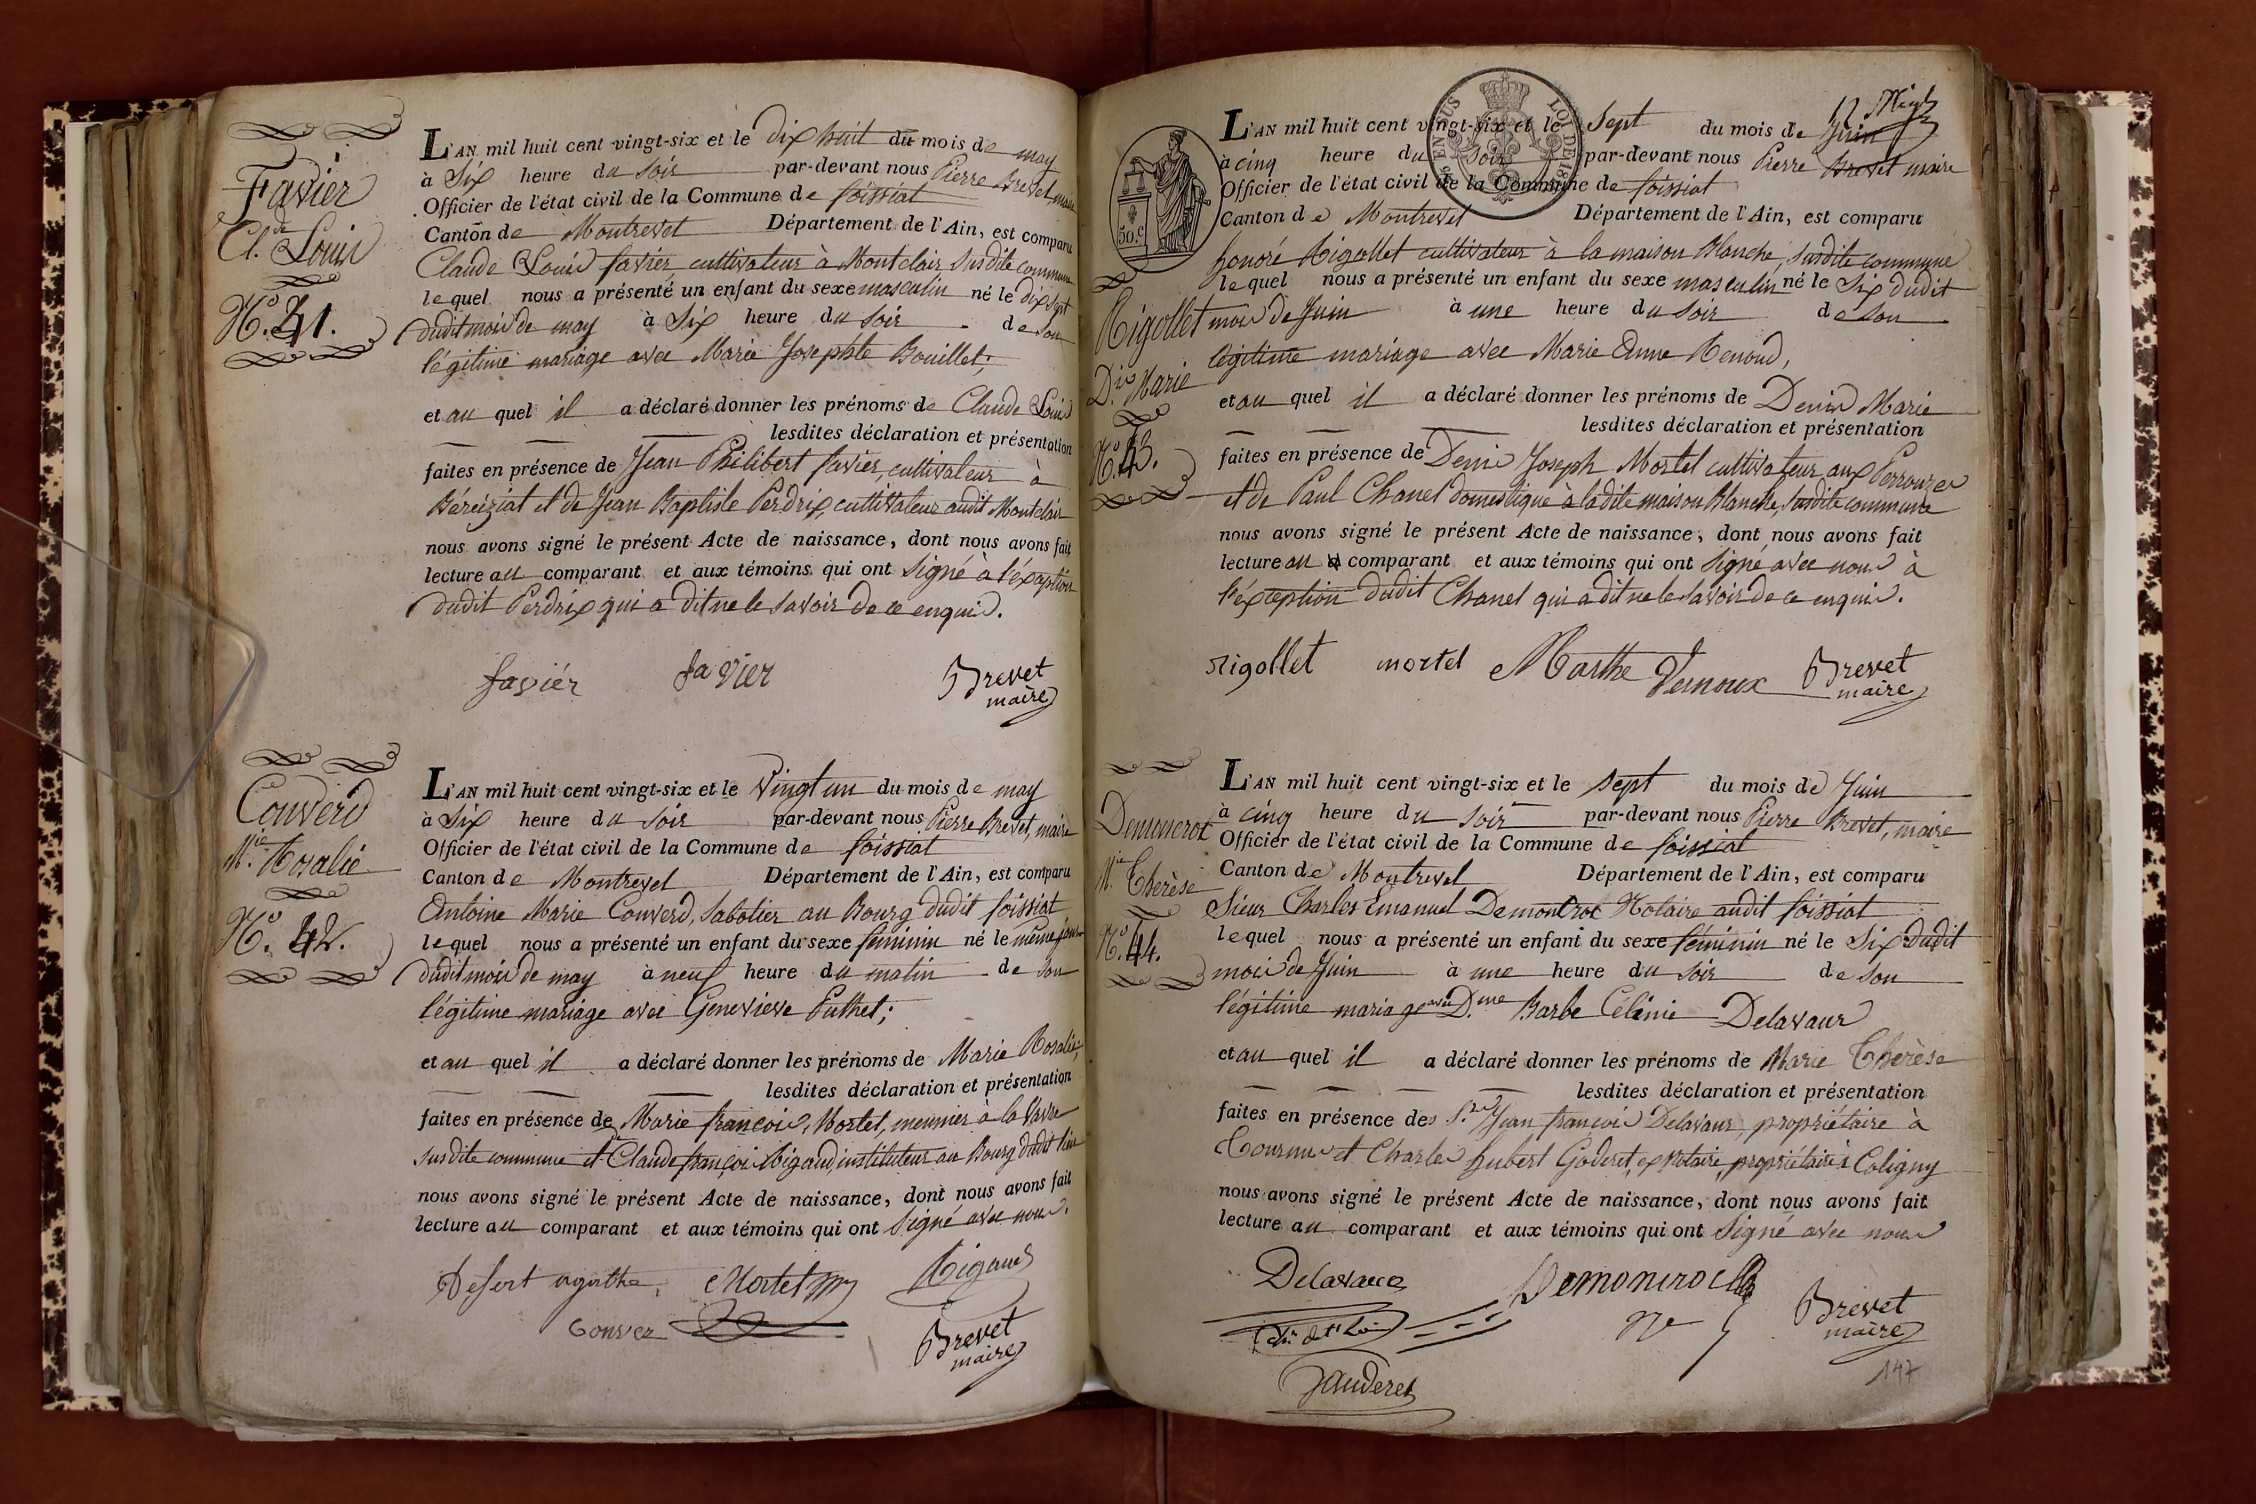 Favier
Cl.de Louis
N.o 41.
L'AN mil huit cent vingt-six et le dix huit du mois de may
à Six heure du soir par-devant nous Pierre Brevet, maire
Officier de l'état civil de la Commune de foissiat
Canton de Montrevel Département de l'Ain, est comparu
Claude Louis favier, cultivateur à Montclair, susdite commune
lequel nous a présenté un enfant du sexe masculin né le dix sept
dudit mois de may à Six heure du soir de son
légitime mariage avec Marie Josephte Bouillet;
et au quel il a déclaré donner les prénoms de Claude Louis
lesdites déclaration et présentation
faites en présence de Jean Philibert favier, cultivateur à
Béréiziat et de Jean Baptiste Perdrix, cultivateur audit Montclair
nous avons signé le présent Acte de naissance, dont nous avons fait
lecture au comparant et aux témoins qui ont signé à l'éxception
dudit Perdrix qui a dit ne le savoir de ce enquis.
favier favier Brevet
maire
Converd
M.ie Rosalie
N.o 42.
L'AN mil huit cent vingt-six et le vingt un du mois de may
à Six heure du soir par-devant nous Pierre Brevet, maire
Officier de l'état civil de la Commune de foissiat
Canton de Montrevel Département de l'Ain, est comparu
Antoine Marie Converd, sabotier au Bourg dudit foissiat
lequel nous a présenté un enfant du sexe féminin né le même jour
dudit mois de may à neuf heure du matin de son
légitime mariage avec Genevieve Puthet;
et au quel il a déclaré donner les prénoms de Marie Rosalie,
lesdites déclaration et présentation
faites en présence de Marie françois Mortel, meunier à la
susdite commune et Claude françois Rigaud instituteur au Bourg dudit lieu
nous avons signé le présent Acte de naissance, dont nous avons fait
lecture au comparant et aux témoins qui ont signé avec nous.
Desert agathe Mortel Rigaud
Conver Brevet
maire
50.c
Rigollet
D.is Marie
N.o 43.
12 
L'AN mil huit cent vingt-six et le sept du mois de Juin
à cinq heure du soir par-devant nous Pierre Brevet maire
Officier de l'état civil de la Commune de foissiat
Canton de Montrevel Département de l'Ain, est comparu
honoré Rigollet cultivateur à la maison Blanche, susdite commune
lequel nous a présenté un enfant du sexe masculin né le Six dudit
mois de Juin à une heure du soir de son
légitime mariage avec Marie Anne Renoud,
et au quel il a déclaré donner les prénoms de Denis Marie
lesdites déclaration et présentation
faites en présence de Denis Joseph Mortel cultivateur aux Perrouzes
et de Paul Chanel domestique à ladite maison Blanche, susdite commune
nous avons signé le présent Acte de naissance, dont nous avons fait
lecture au comparant et aux témoins qui ont signé avec nous à
l'éxception dudit Chanel qui a dit ne le savoir de ce enquis.
rigollet mortel Marthe Vernoux Brevet
maire
M.ie Therèse
N.o 44.
L'AN mil huit cent vingt-six et le sept du mois de Juin
à cinq heure du soir par-devant nous Pierre Brevet, maire
Officier de l'état civil de la Commune de foissiat
Canton de Montrevel Département de l'Ain, est comparu
Sieur Charles Emanuel Demontrot Notaire audit foissiat
lequel nous a présenté un enfant du sexe féminin né le Six dudit
mois de Juin à une heure du soir de son
légitime mariage avec D.me Barbe Célénie Delavaur
et au quel il a déclaré donner les prénoms de Marie Therèse
lesdites déclaration et présentation
faites en présence des S.rs Jean françois Delavaur, propriétaire à
Tournus et Charles hubert Goderet, ex Notaire, propriétaire à Coligny
nous avons signé le présent Acte de naissance, dont nous avons fait
lecture au comparant et aux témoins qui ont signé avec nous
Brevet
maire
147